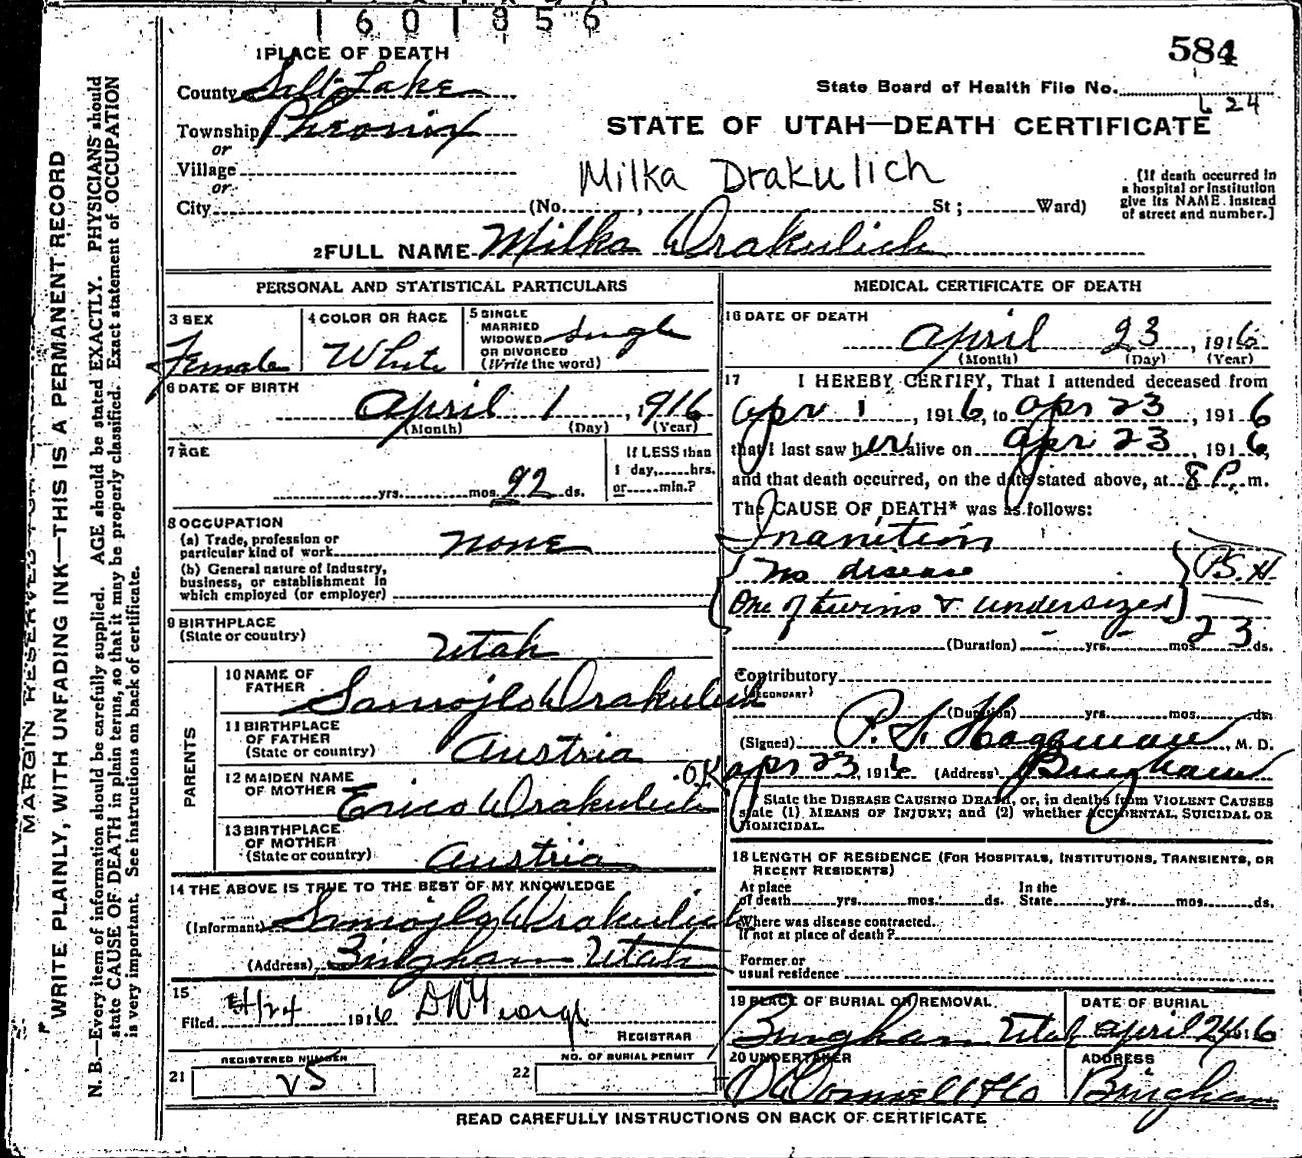 1601856
584
1 PLACE OF DEATH
County Salt Lake
State Board of Health File No.
624
Township Pheonix
STATE OF UTAH—DEATH CERTIFICATE
or
Village
or
Milka Drakulich
City (No. , St ; Ward)
[If death occurred in a hospital or institution give its NAME. instead of street and number.]
2 FULL NAME Milka Drakulich
PERSONAL AND STATISTICAL PARTICULARS
3 SEX
Female
4 COLOR OR RACE
White
5 SINGLE MARRIED WIDOWED OR DIVORCED (Write the word)
Single
6 DATE OF BIRTH
April 1, 1916
(Month) (Day) (Year)
7 AGE
yrs. mos. 22 ds.
If LESS than 1 day, hrs. or min.?
8 OCCUPATION
(a) Trade, profession or particular kind of work none
(b) General nature of Industry, business, or establishment in which employed (or employer)
9 BIRTHPLACE
(State or country) Utah
PARENTS
10 NAME OF FATHER Samojlo Drakulich
11 BIRTHPLACE OF FATHER (State or country) Austria
12 MAIDEN NAME OF MOTHER Erica Drakulich
13 BIRTHPLACE OF MOTHER (State or country) Austria
14 THE ABOVE IS TRUE TO THE BEST OF MY KNOWLEDGE
(Informant) Samojlo Drakulich
(Address) Bingham Utah
15
Filed 4/24 1916
REGISTRAR
REGISTERED NUMBER
21 25
NO. OF BURIAL PERMIT
22
MEDICAL CERTIFICATE OF DEATH
16 DATE OF DEATH
April 23, 1916
(Month) (Day) (Year)
17 I HEREBY CERTIFY, That I attended deceased from
Apr 1, 1916, to Apr 23, 1916
that I last saw her alive on Apr 23, 1916,
and that death occurred, on the date stated above, at 8 P. m.
The CAUSE OF DEATH* was as follows:
Inanition
no disease
One of twins & undersized
P.S.H
(Duration) - yrs. - mos. 23 ds.
Contributory
(SECONDARY)
(Duration) yrs. mos. ds.
(Signed) P. S. Hageman, M. D.
OK Apr 23, 1916 (Address) Bingham
* State the DISEASE CAUSING DEATH, or, in deaths from VIOLENT CAUSES
state (1) MEANS OF INJURY; and (2) whether ACCIDENTAL, SUICIDAL OR
HOMICIDAL.
18 LENGTH OF RESIDENCE (FOR HOSPITALS, INSTITUTIONS, TRANSIENTS, OR
RECENT RESIDENTS)
At place of death yrs. mos. ds. In the State yrs. mos. ds.
Where was disease contracted.
If not at place of death?
Former or
usual residence
19 PLACE OF BURIAL OR REMOVAL
Bingham Utah
DATE OF BURIAL
April 24 1916
20 UNDERTAKER
O'Donnell & Co
ADDRESS
Bingham
READ CAREFULLY INSTRUCTIONS ON BACK OF CERTIFICATE
MARGIN RESERVED FOR
WRITE PLAINLY, WITH UNFADING INK—THIS IS A PERMANENT RECORD
N. B.—Every item of information should be carefully supplied. AGE should be stated EXACTLY. PHYSICIANS should
state CAUSE OF DEATH in plain terms, so that it may be properly classified. Exact statement of OCCUPATION
is very important. See instructions on back of certificate.